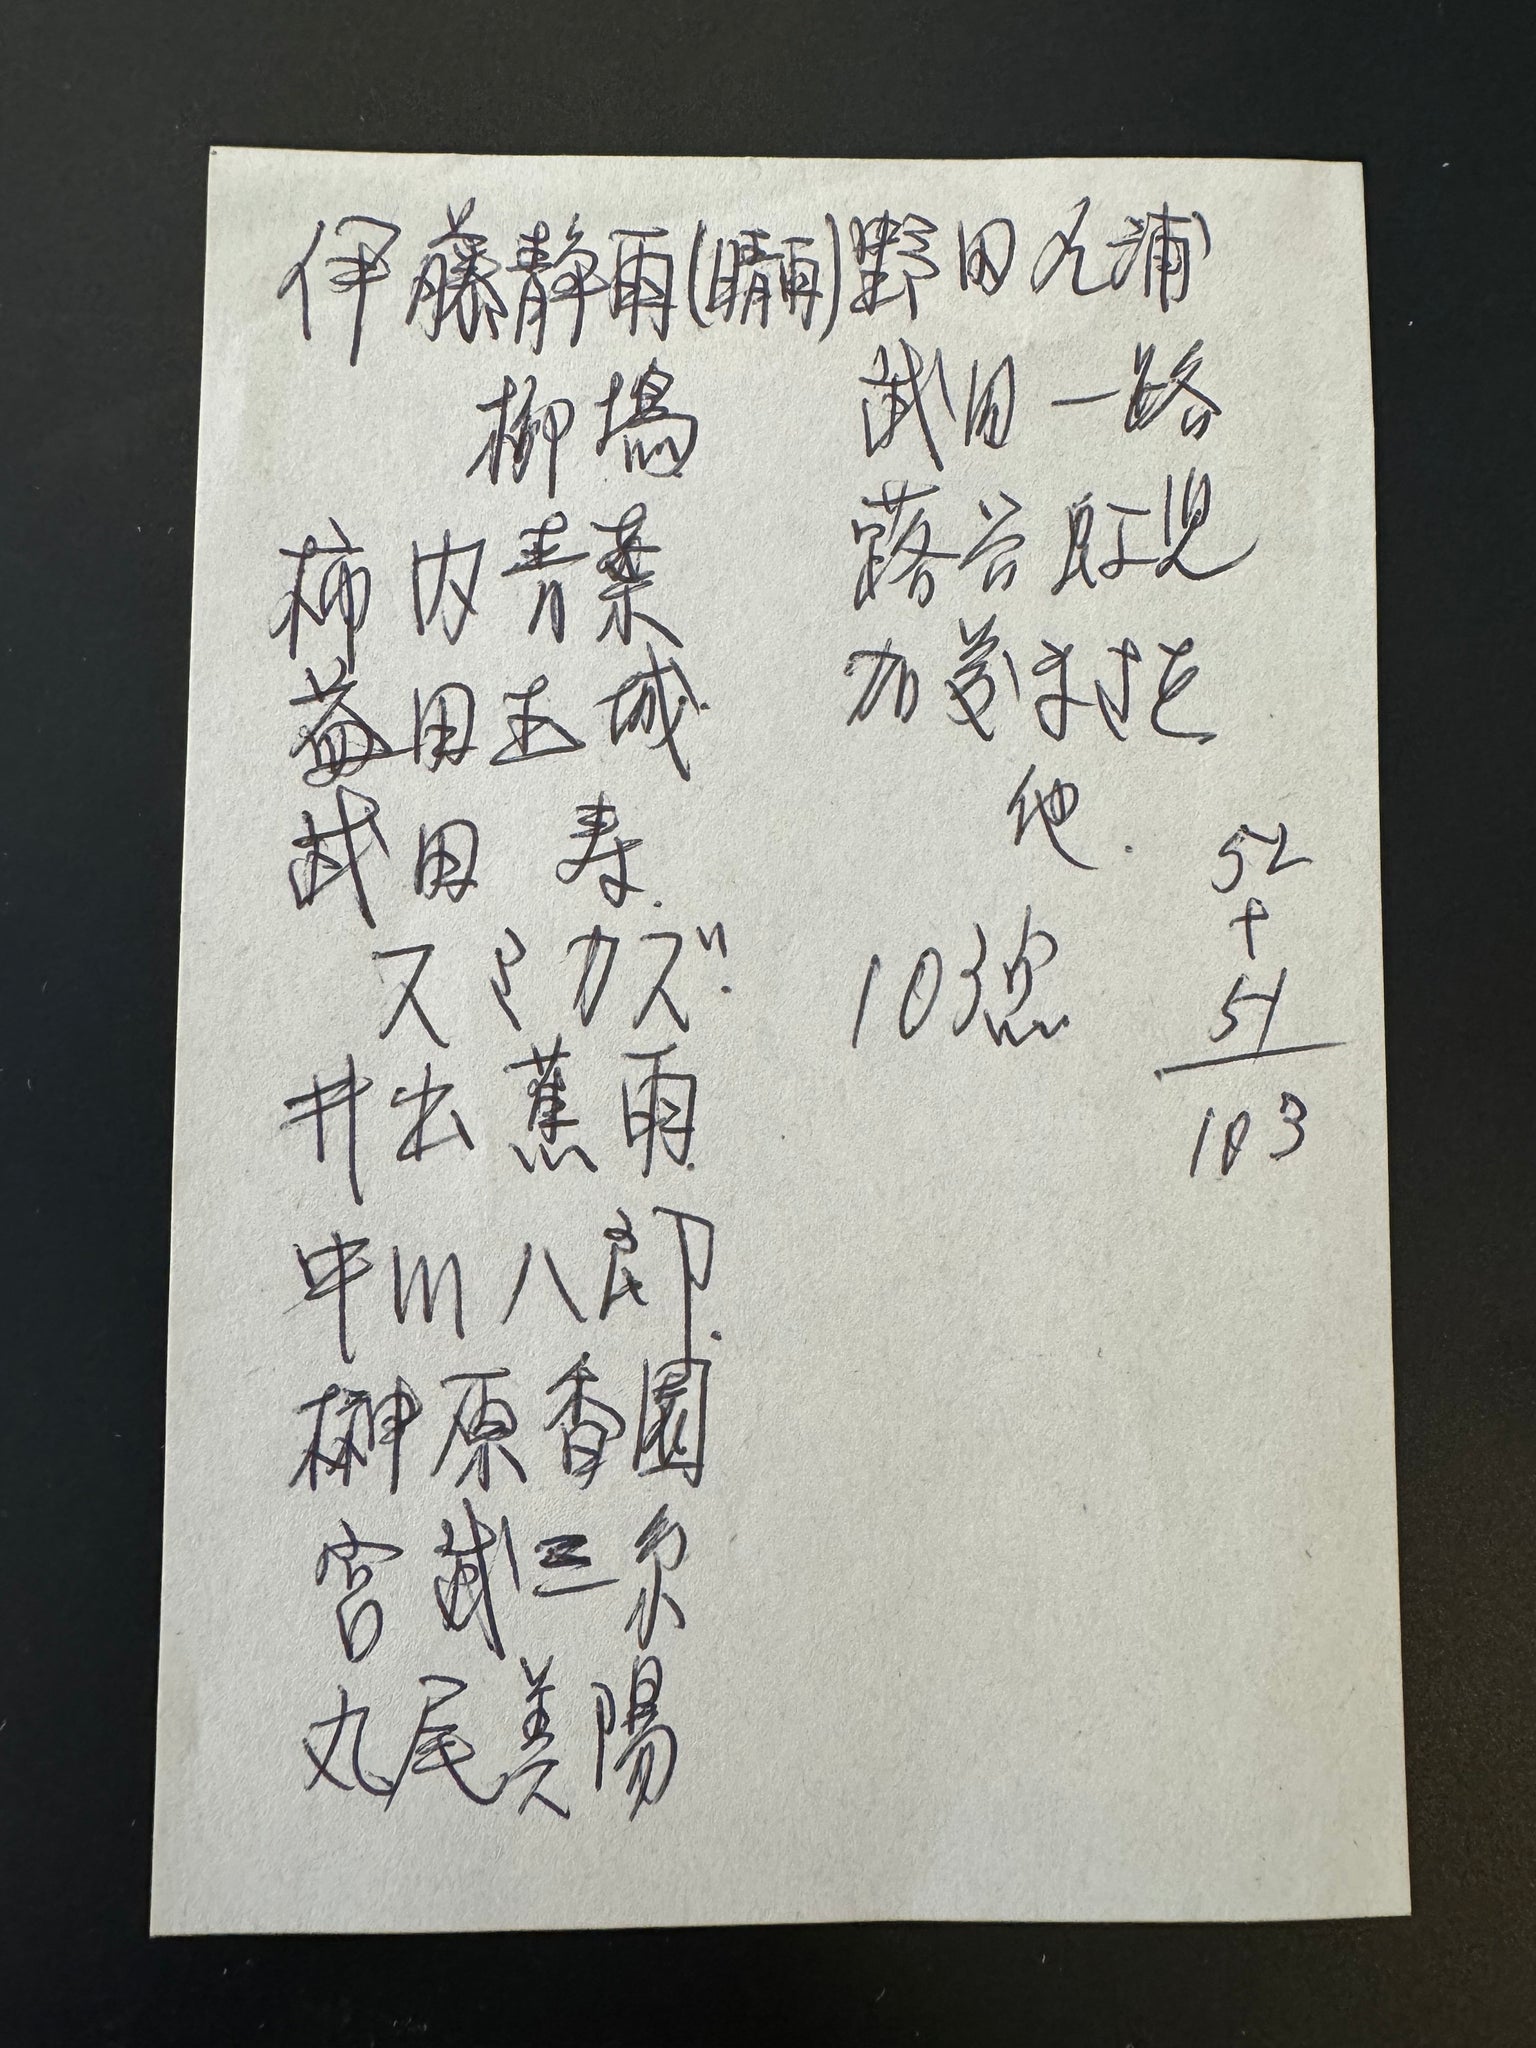 伊藤静雨(晴雨)
柳塢
柿内青葉
益田玉城
武田 寿
スミカズ
井出蕉雨
中川八郎
榊原香園
宮武三尓
丸尾美陽
野田九浦
武田一路
蕗谷虹児
加藤まさを
他.
103
52
+
51
103